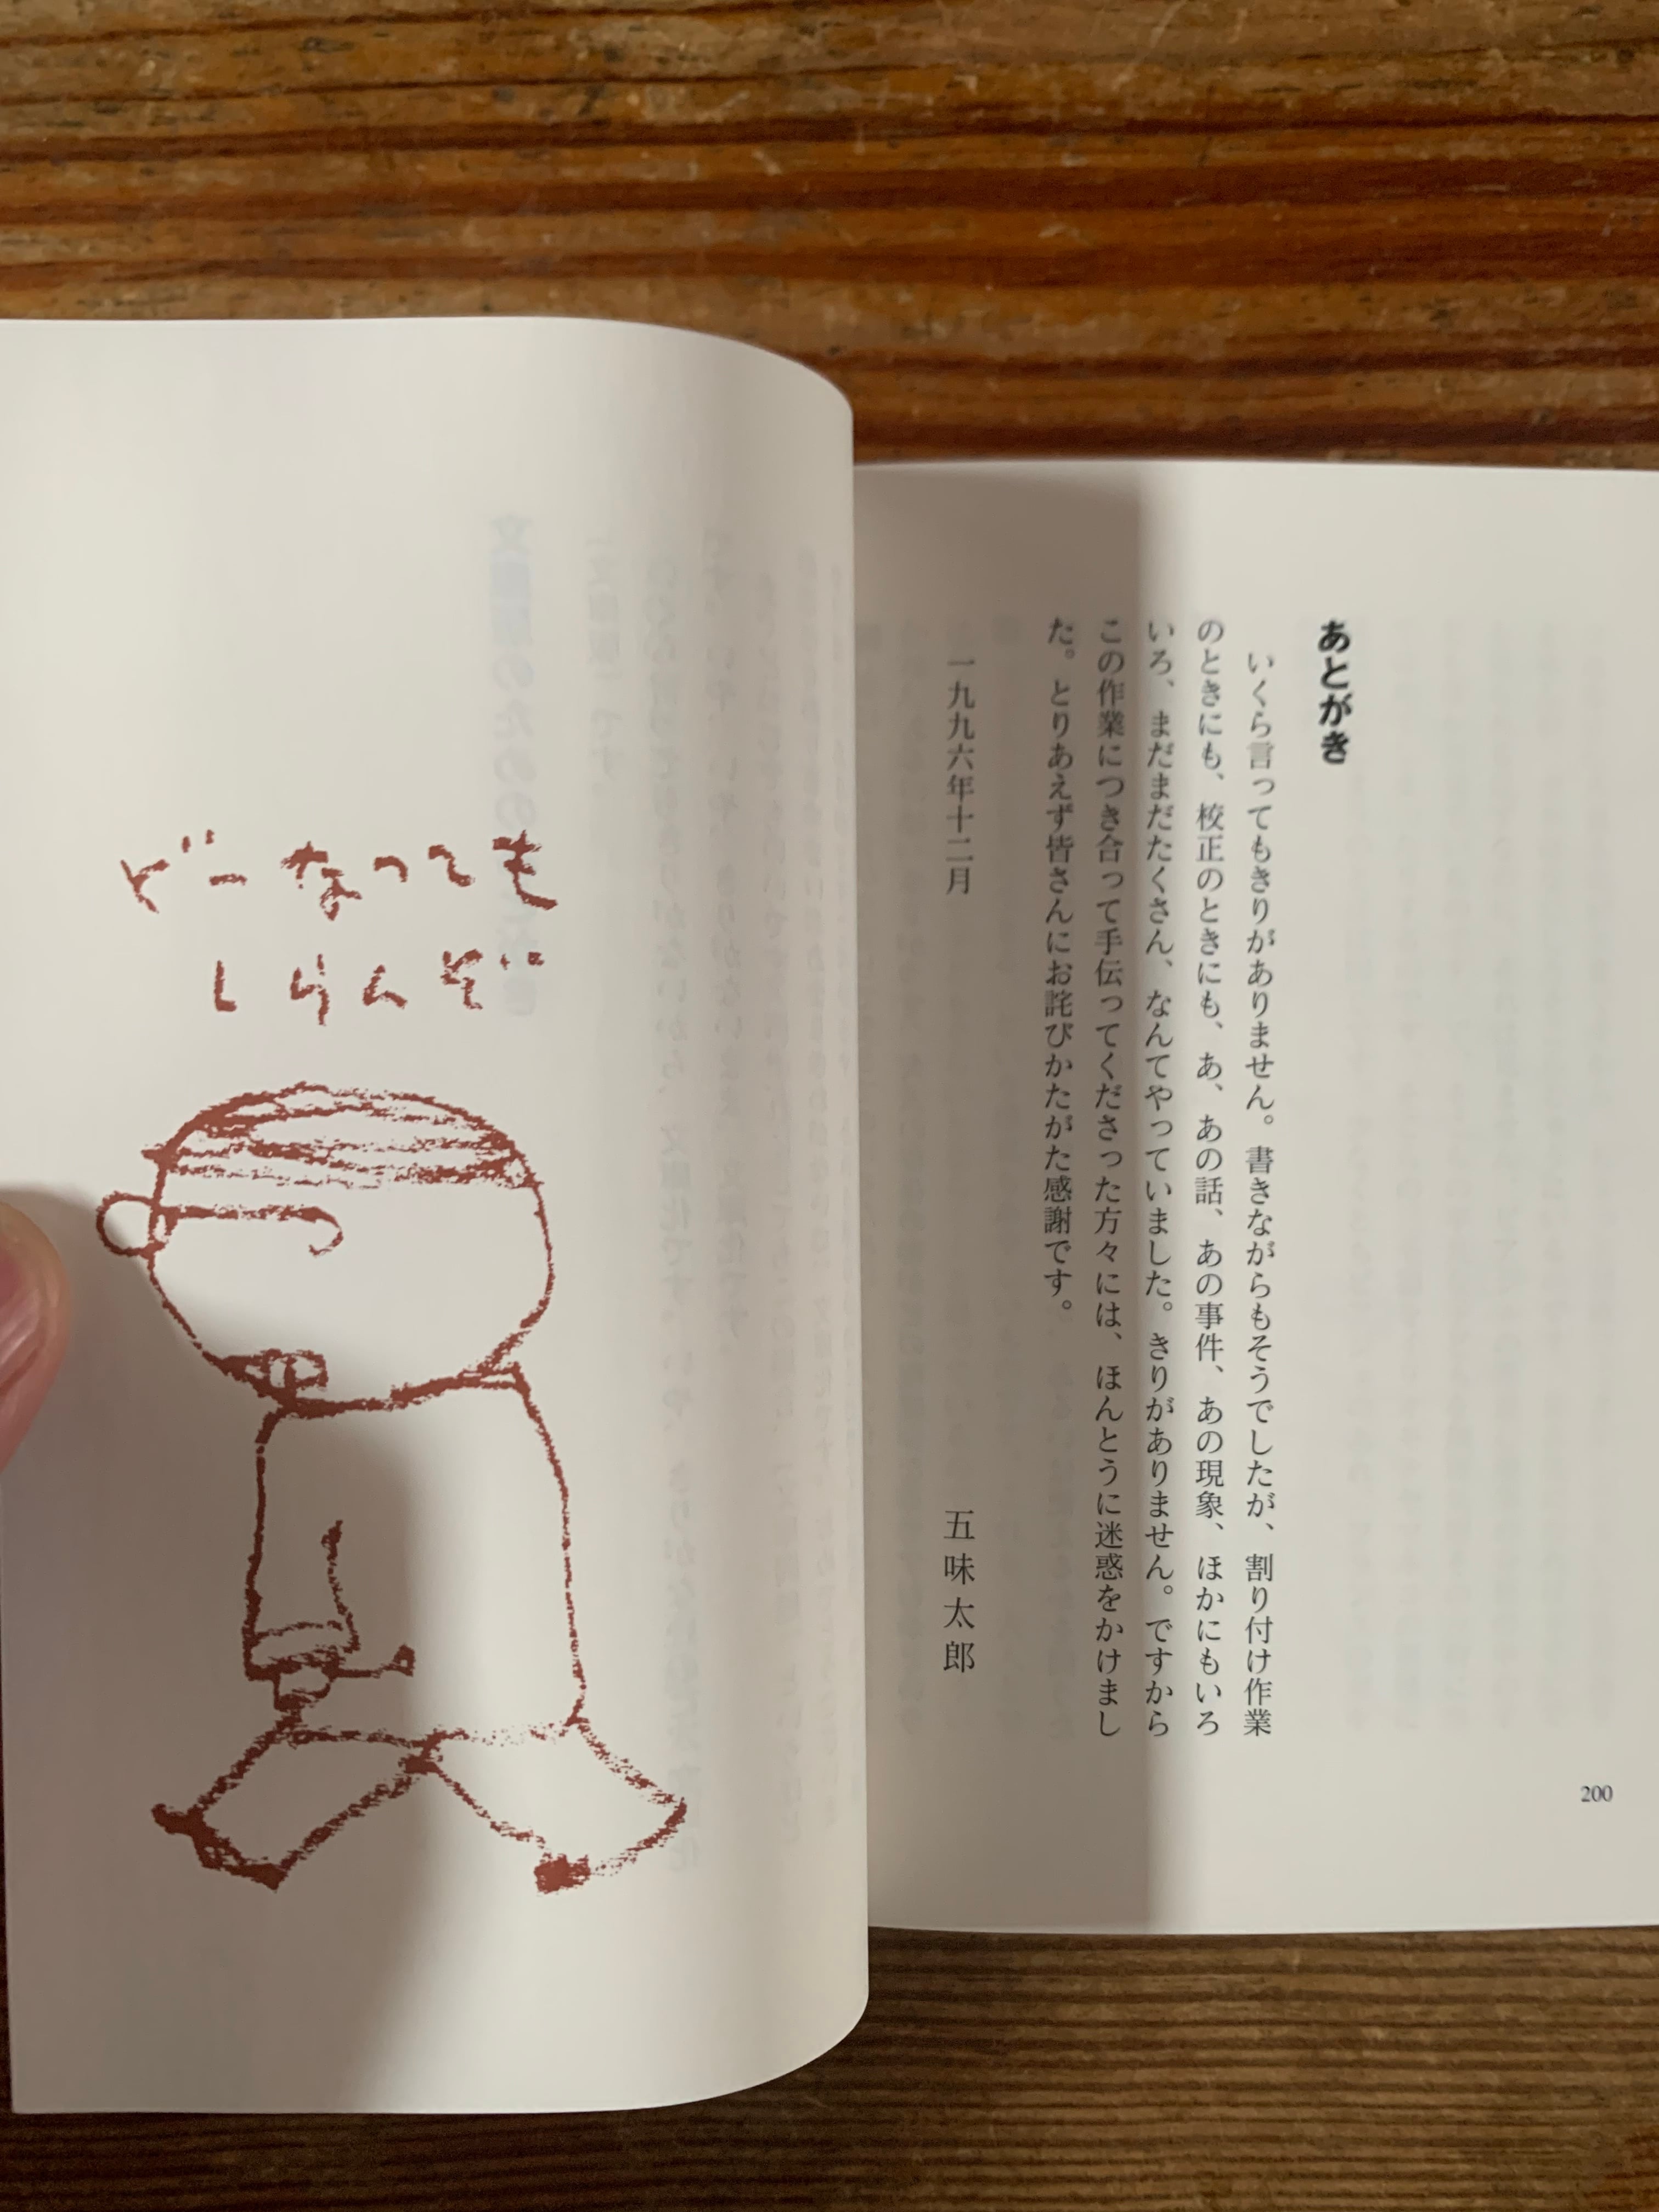 あとがき
いくら言ってもきりがありません。書きながらもそうでしたが、割り付け作業
のときにも、校正のときにも、あ、あの話、あの事件、あの現象、ほかにもいろ
いろ、まだまだたくさん、なんてやっていました。きりがありません。ですから
この作業につき合って手伝ってくださった方々には、ほんとうに迷惑をかけまし
た。とりあえず皆さんにお詫びかたがた感謝です。
一九九六年十二月
五味太郎
200
どーなっても
しらんぞ